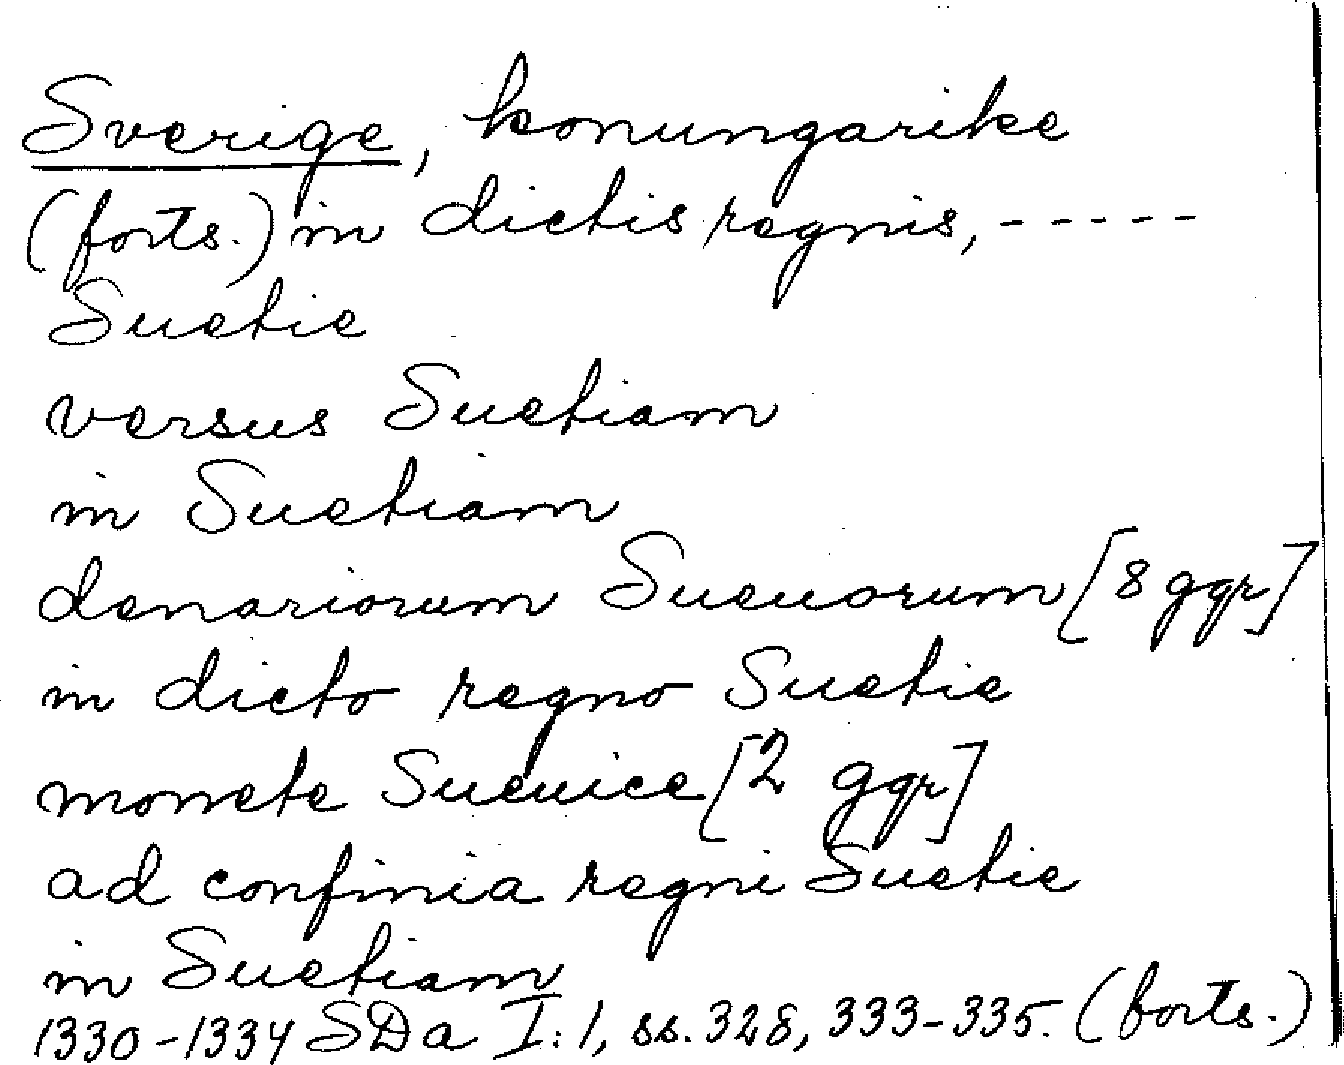 Sverige, konungarike
(forts.) in dictis regnis, -----
Suetie
versus Suetiam
in Suetiam
denariorum Sueuorum [8 ggr]
in dicto regno Suetie
monete Sueuice [2 ggr]
ad confinia regni Suetie
in Suetiam
1330-1334 SDa I:1, ss. 328, 333-335. (forts.)